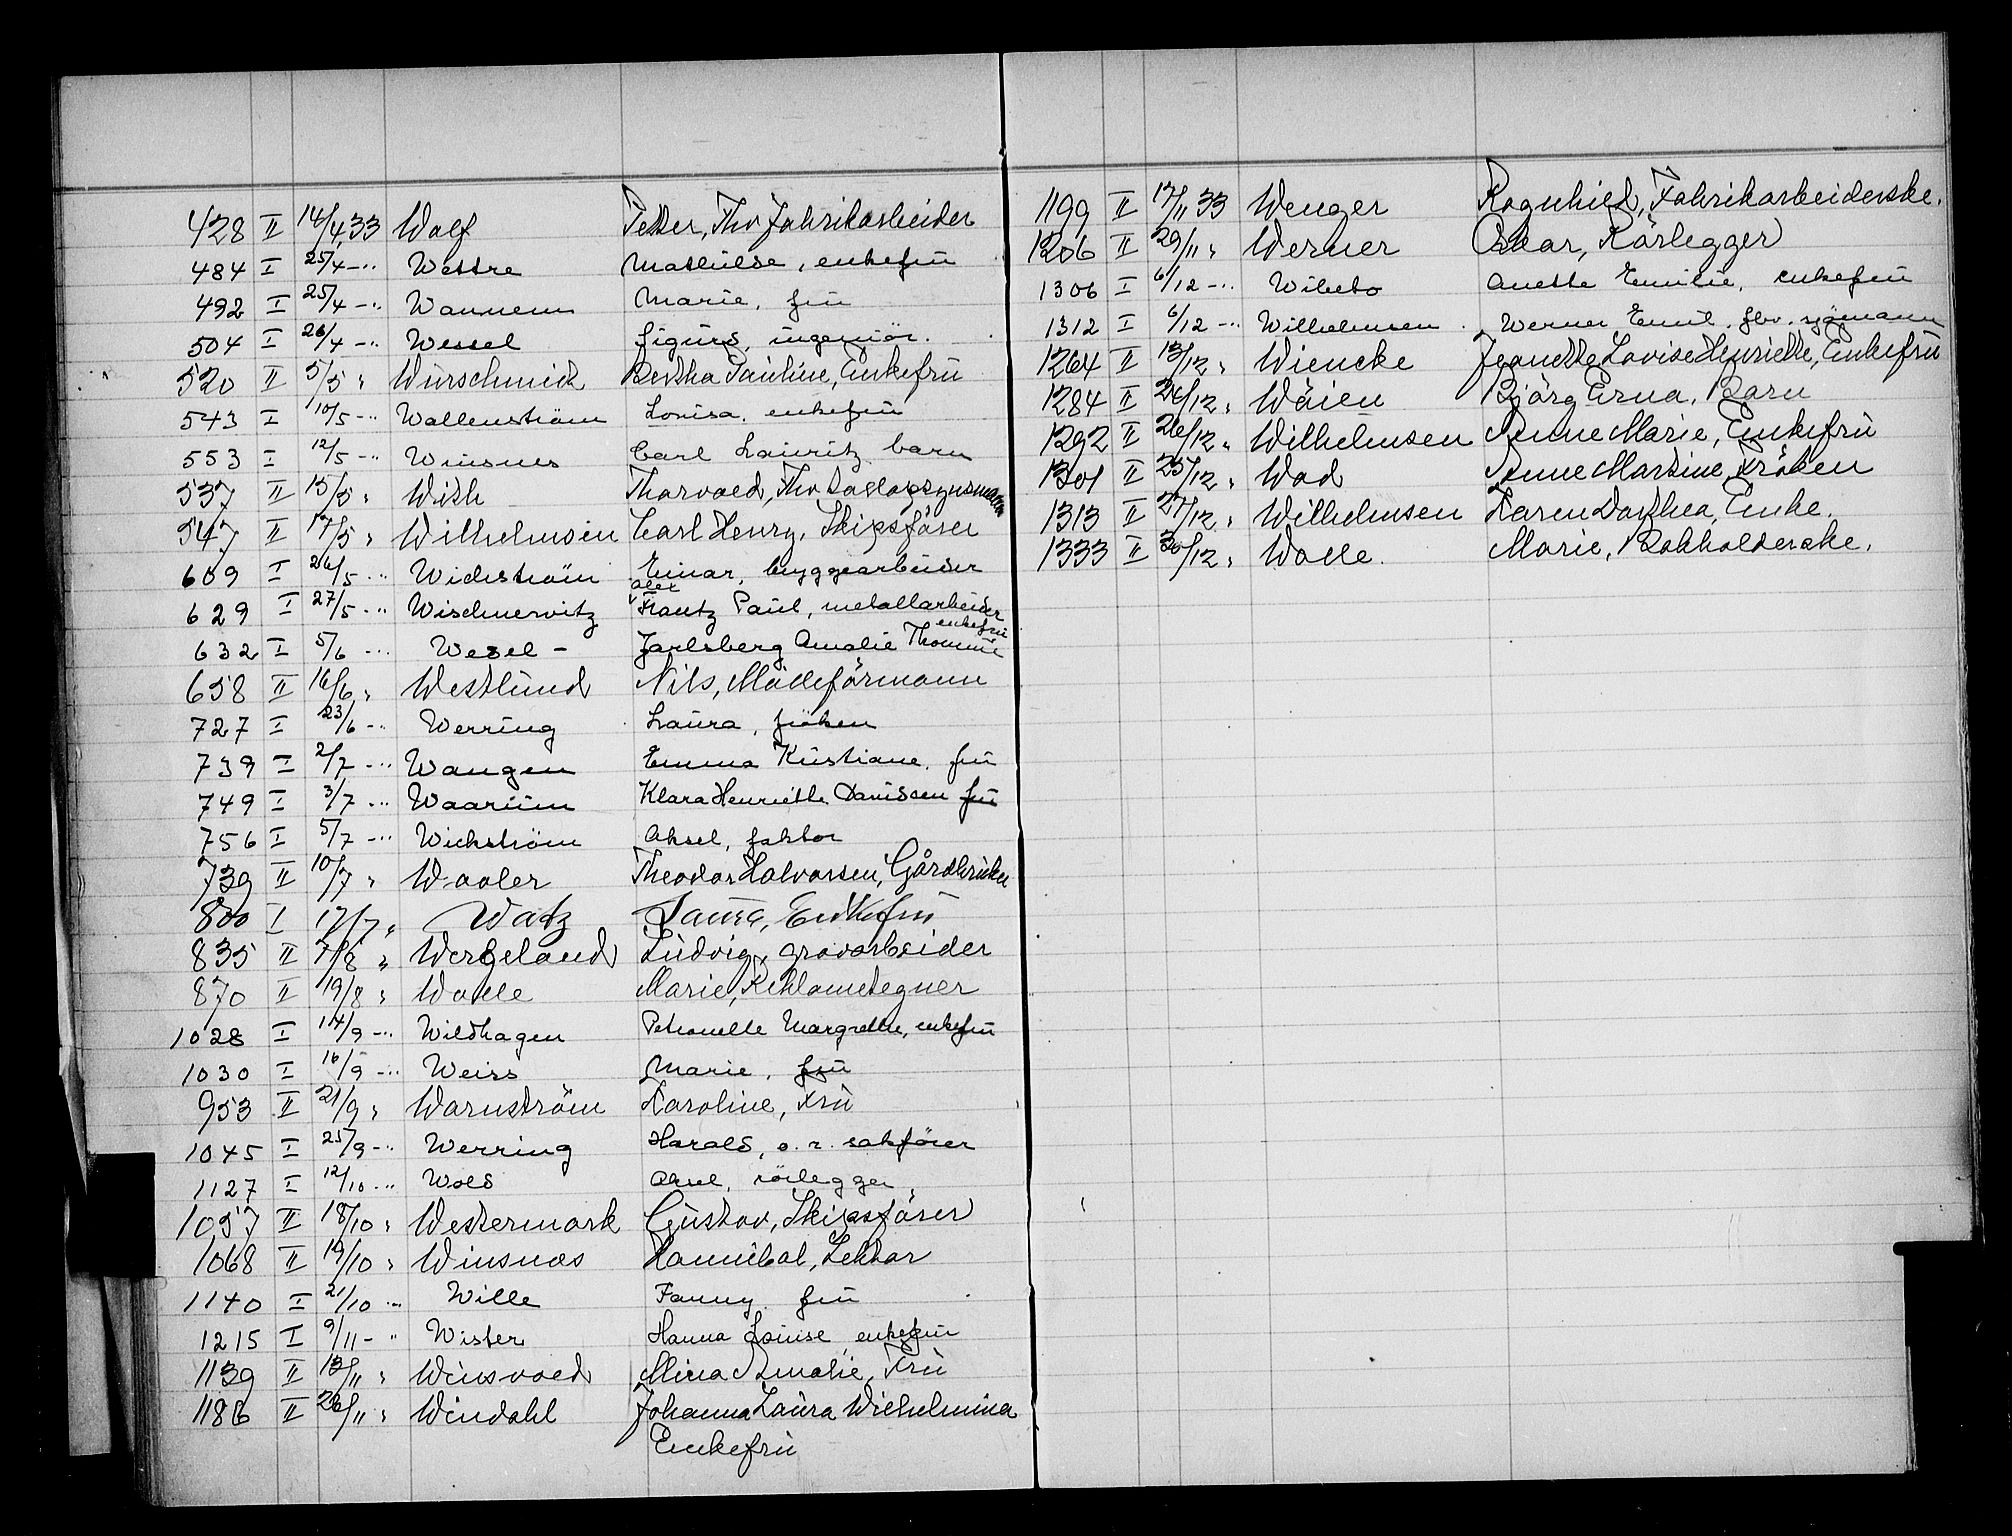 428 II 14/4 33 Wolf Petter, Thv Fabrikarbeider
484 I 25/4 -"- Wettre Mathilde, enkefru
492 I 25/4 -"- Wannem Marie, fru
504 I 26/4 -"- Wessel Sigurd, ingeniør.
520 II 5/5 " Würschmidt Bertha Pauline, Enkefru
543 I 10/5 -"- Wallenstrøm Lovisa, enkefru
553 I 12/5 -"- Winsnes Carl Lauritz barn
537 II 15/5 " With Thorvald, Thv
547 II 17/5 " Wilhelmsen Carl Henry, Skipsfører
609 I 26/5 -"- Wickstrøm Einar, bryggearbeider
629 I 27/5 -"- Wischnewitz alex Frantz Paul, metallarbeider
632 I 5/6 -"- Wesel - Jarlsberg Amalie Thomine enkefru
658 II 16/6 " Westlund Nils, Mølleformann
727 I 23/6 -"- Werring Laura, frøken
739 I 2/7 -"- Wangen Emma Kristiane, fru
749 I 3/7 -"- Waarum Klara Henriette Davidsen fru
756 I 5/7 -"- Wickstrøm Aksel, faktor
739 II 10/7 " Waaler Theodor Halvorsen, Gårdbruker
800 I 17/7 " Watz Laura, Enkefru
835 II 7/8 " Wergeland Ludvig, gravarbeider
870 II 19/8 " Walle Marie, Reklametegner
1028 I 14/9 -"- Wildhagen Petronelle Margrethe, enkefru
1030 I 16/9 -"- Weiss Marie, fru
953 II 21/9 " Warnstrøm Karoline, Fru
1045 I 25/9 -"- Werring Harald, o. r. sakfører
1127 I 12/10 -"- Wold Aksel, rørlegger
1057 II 18/10 " Westermark Gustav, Skipsfører
1068 II 19/10 " Winsnæs Hannibal, Lektor
1140 I 21/10 -"- Wille Fanny, fru
1215 I 9/11 -"- Wister Hanna Louise enkefru
1139 II 13/11 " Winsvold Mina Amalie, Fru
1186 II 26/11 " Windahl Johanna Laura Wilhelmina
Enkefru
1199 II 17/11 33 Wenger Ragnhild, Fabrikarbeiderske.
1206 II 29/11 " Werner Oskar, Rørlegger
1306 I 6/12 -"- Wibeto Anette Emilie, enkefru
1312 I 6/12 -"- Wilhelmsen Werner Emil, fhv. sjømann
1264 II 13/12 " Wiencke Jeanette Lovise Henriette, Enkefru
1284 II 26/12 " Wøien Bjørg Erna, Barn
1292 II 26/12 " Wilhelmsen Anne Marie, Enkefru
1301 II 25/12 " Wad Anne Martine, Frøken
1313 II 27/12 " Wilhelmsen Karen Dorthea, Enke.
1333 II 30/12 " Walle. Marie, Bokholderske.